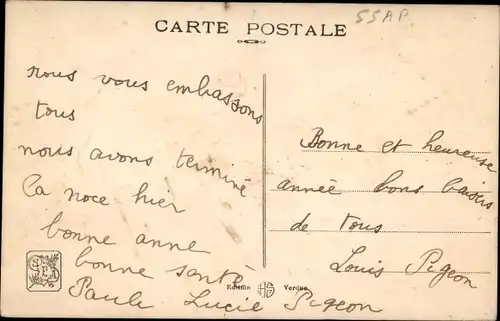 SSAP.
CARTE POSTALE
nous vous embassons
tous
nous avons terminé
la noce hier
bonne anne
bonne santé
Paule Lucie Pigeon
Bonne et heureuse
année bons baisers
de tous
Louis Pigeon
Edition Verdun